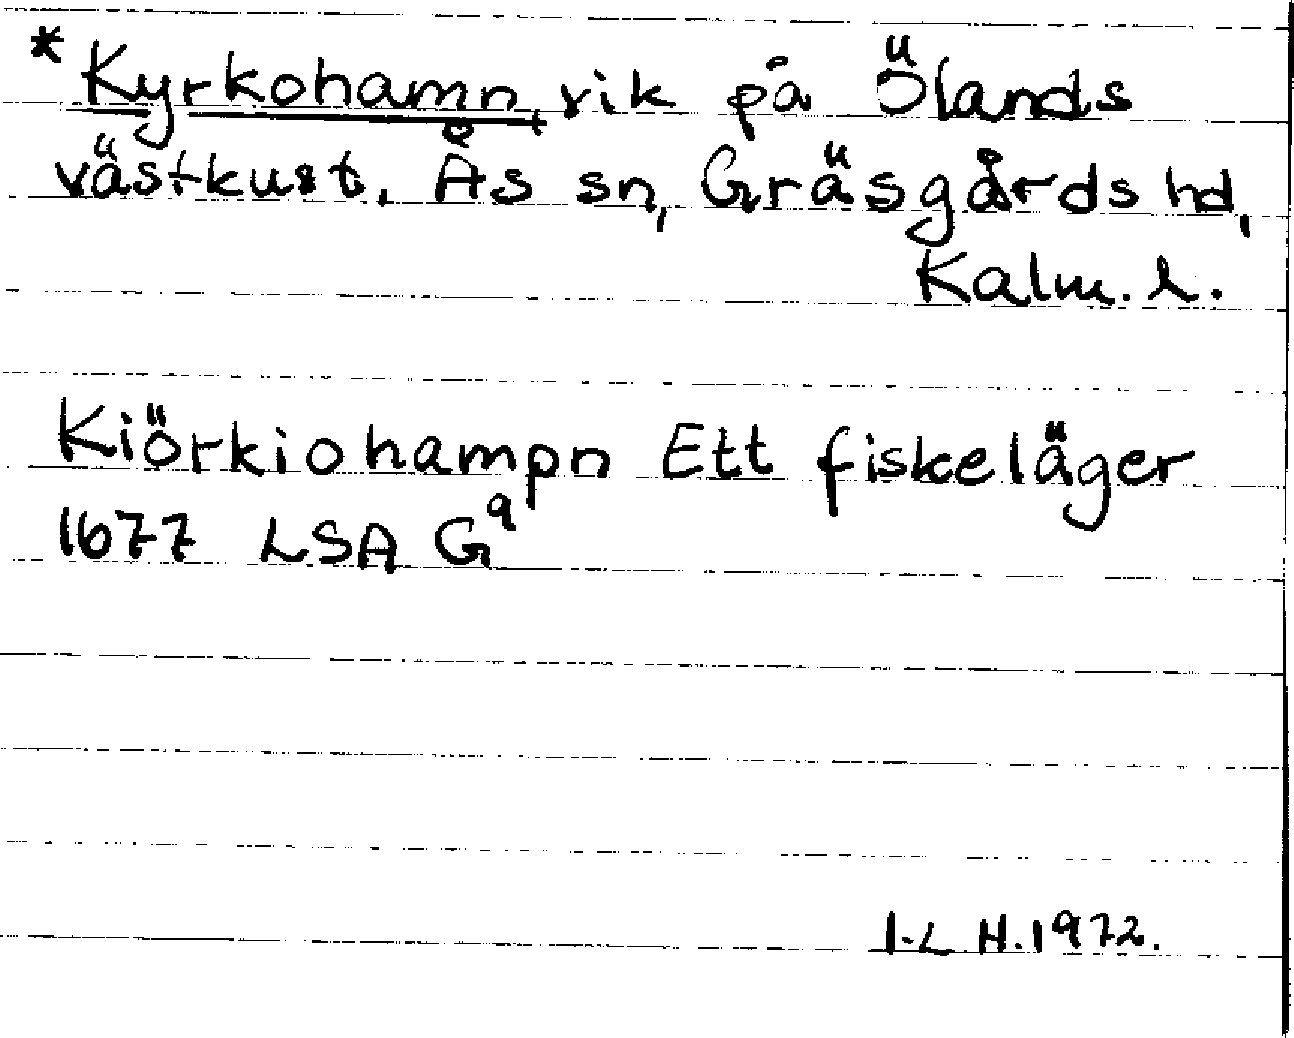 *Kyrkohamn, vik på Ölands
västkust. Ås sn, Gräsgårds hd,
Kalm. l.
Kiörkiohampn Ett fiskeläger
1677 LSA G9
I-L H. 1972.